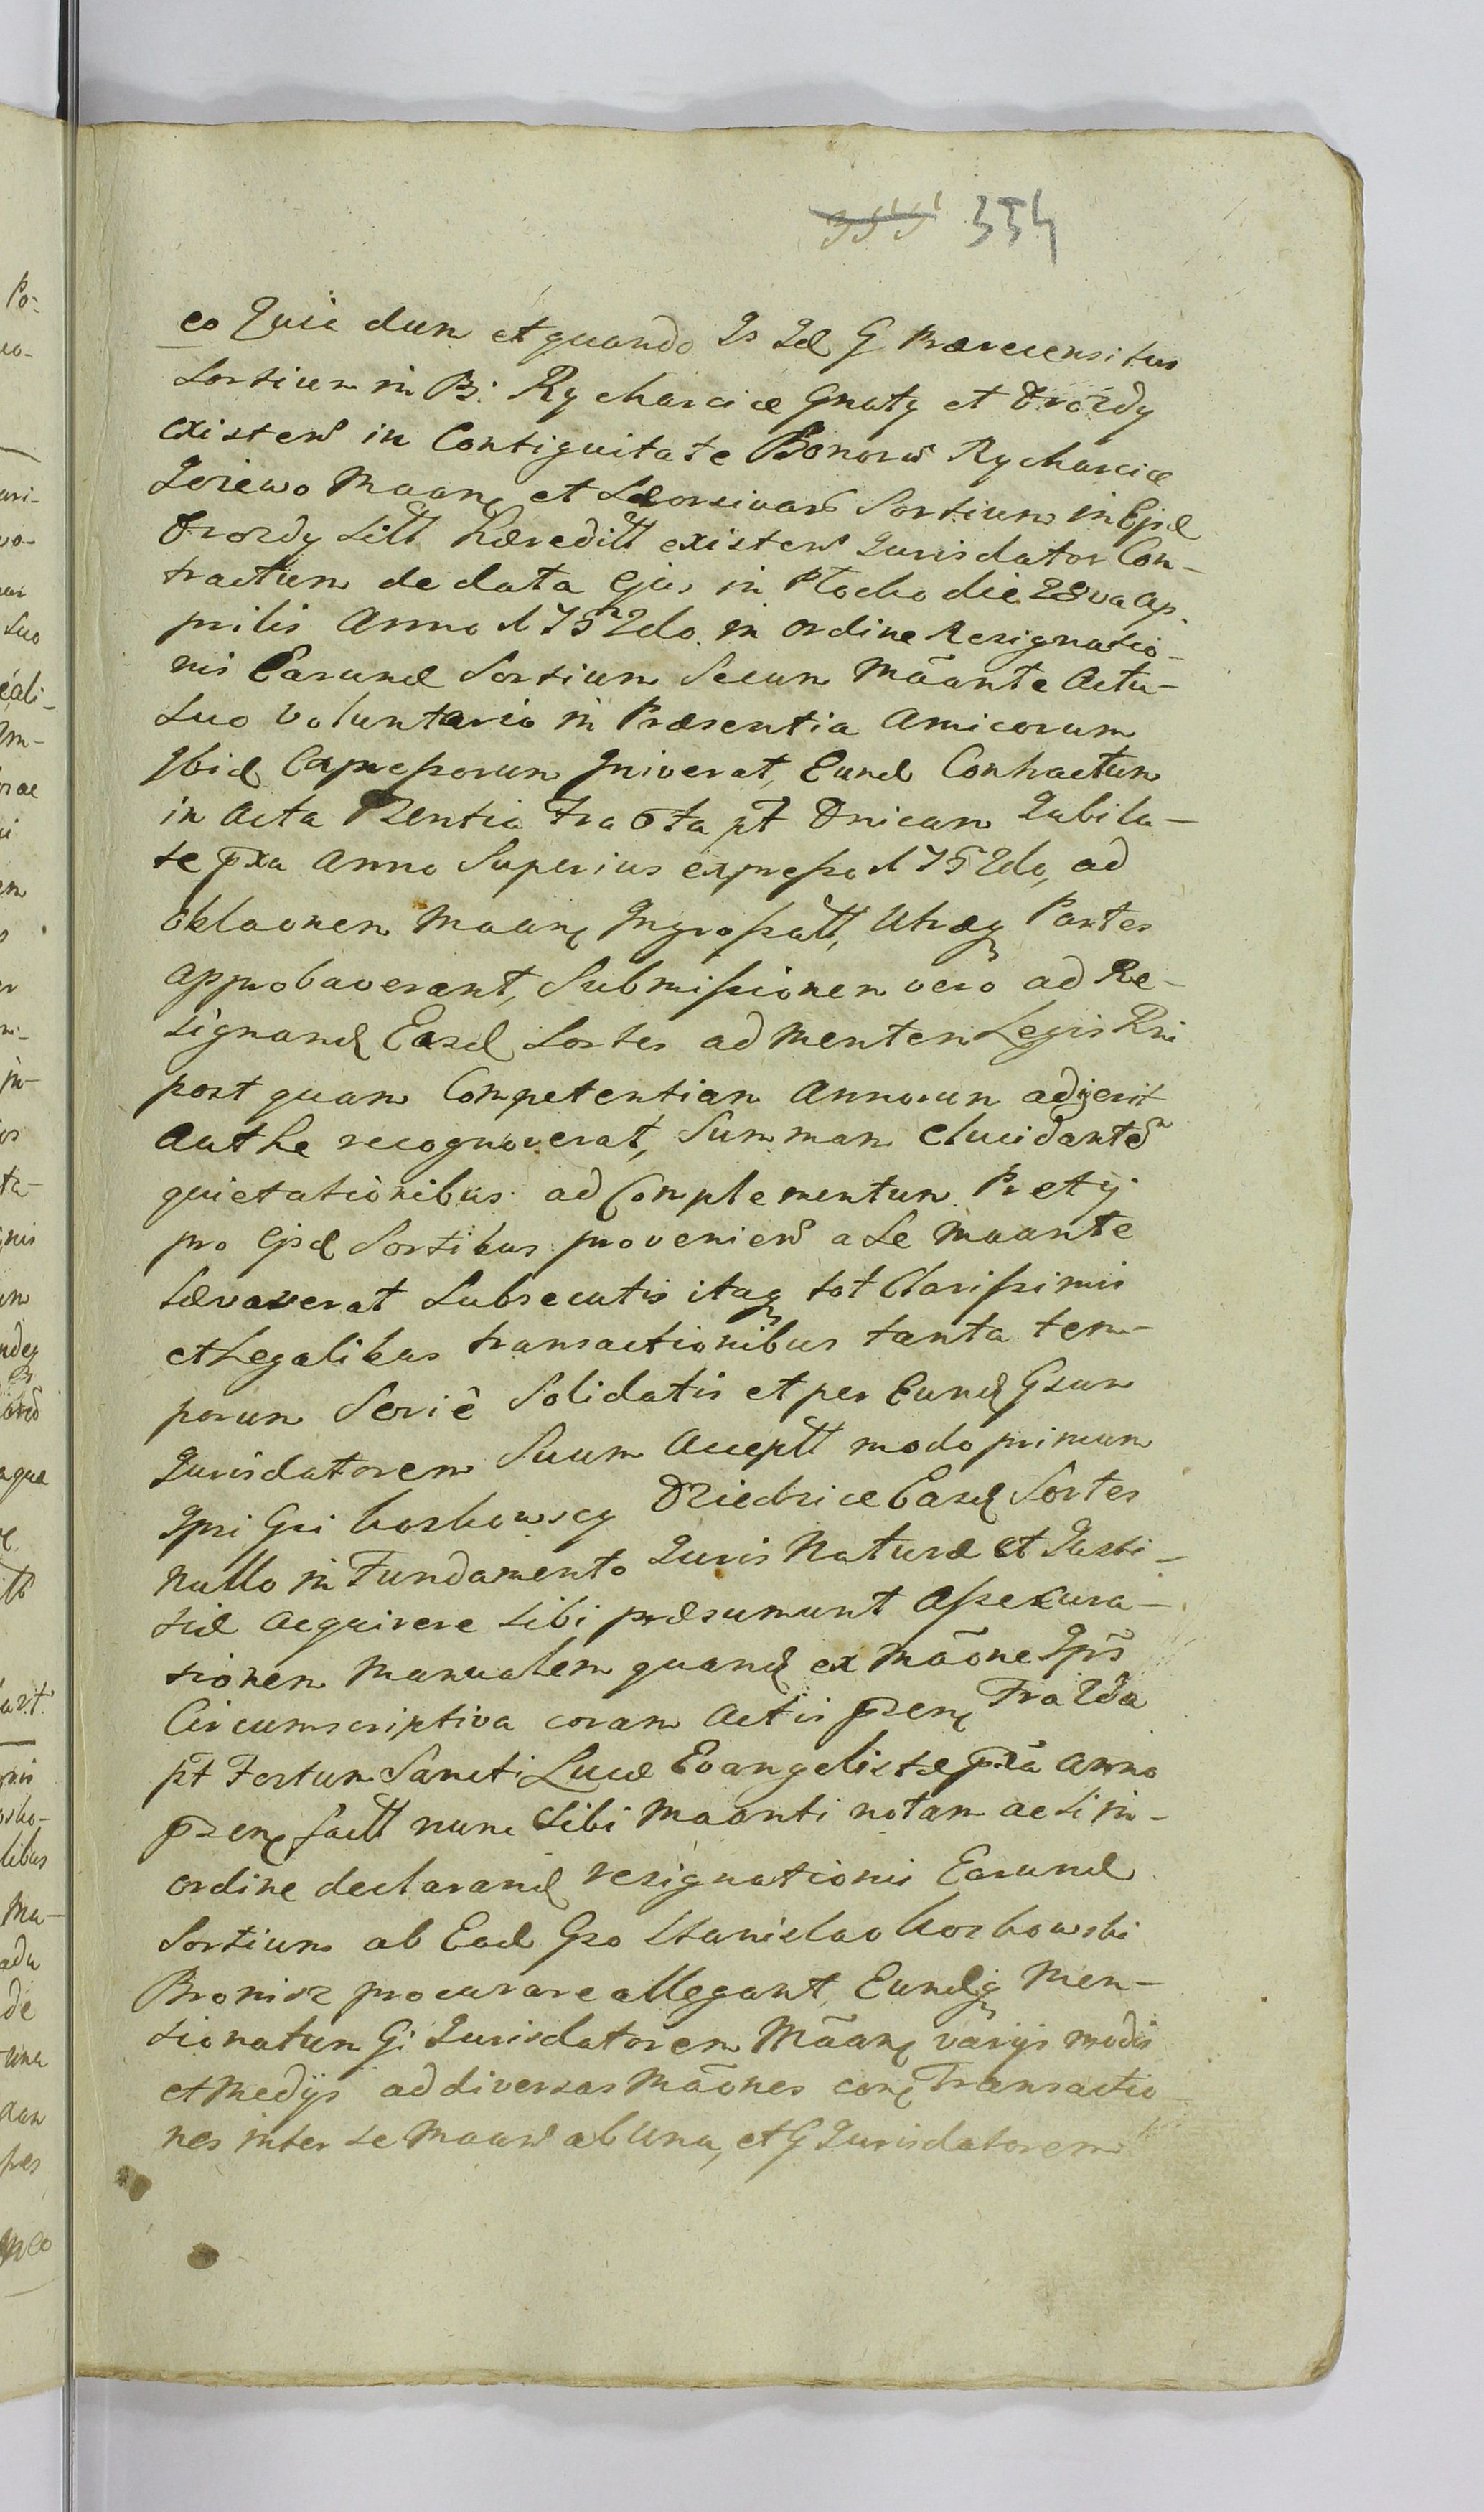 334
eo Quia dum et quando Is Id G Prærecensitus
Sortium in B: Rycharcice Gnaty et Drozdy
existen in Contiguitate Bonorū Rycharcice
Maan et Sortium in Ejsd
Drozdy Sitt hæreditt existen Jurisdator Con-
tractum de data Ejus in Płocko die 28va Ap-
prilis Anno 1752do in ordine Resignatio-
nis Earund Sortium Secum Mãante Actu-
Suo Voluntario in Præsentia Amicorum
Ibid Expressorum Iniverat, Eund Contractum
in Acta Pzentia pt Dnicam Jubila-
te pxa Anno Superius expresso 1752do, ad
oblaonem Maan Ingrossatt, Utræq Partes
approbaverant, Submissionem vero ad Re-
signand Easd Sortes ad mentem Legis Rni
post quam Competentiam Annorum adjerit
Authe recognoverat, Summam elucidante
quietationibus ad Complementum Prety
pro Ejsd Sortibus provenien a Se Maante
Levaverat Subsecutis itaq tot Clarissimis
et Legalibus transactionibus tanta tem-
porum Seriê Solidatis et per Eund Gsum
Jurisdatorem Suum Acceptt modo primum
Ipsi Gsi Koskowscy Dziedzice Easd Sortes
Nullo in Fundamento Juris Naturæ et Justi-
tiæ Acquirere Sibi præsumunt Assecura-
tionem Manualem quand ex Mãone Ipš
Circumscriptiva coram Actis pzen
pt Festum Sancti Lucæ Evangelistæ pxã Anno
pzen factt nunc Sibi Maanti notam ac Si in-
ordine declarand resignationis Earund
Sortium ab Eod Gso Stanislao Koskowski
Bronisz procurare allegant, Eundq Men-
tionatum G: Jurisdatorem Mãan varijs modis
et Medijs ad diversas Mãones con Transactio-
nes inter Se Maan ab Una, et G Jurisdatorem